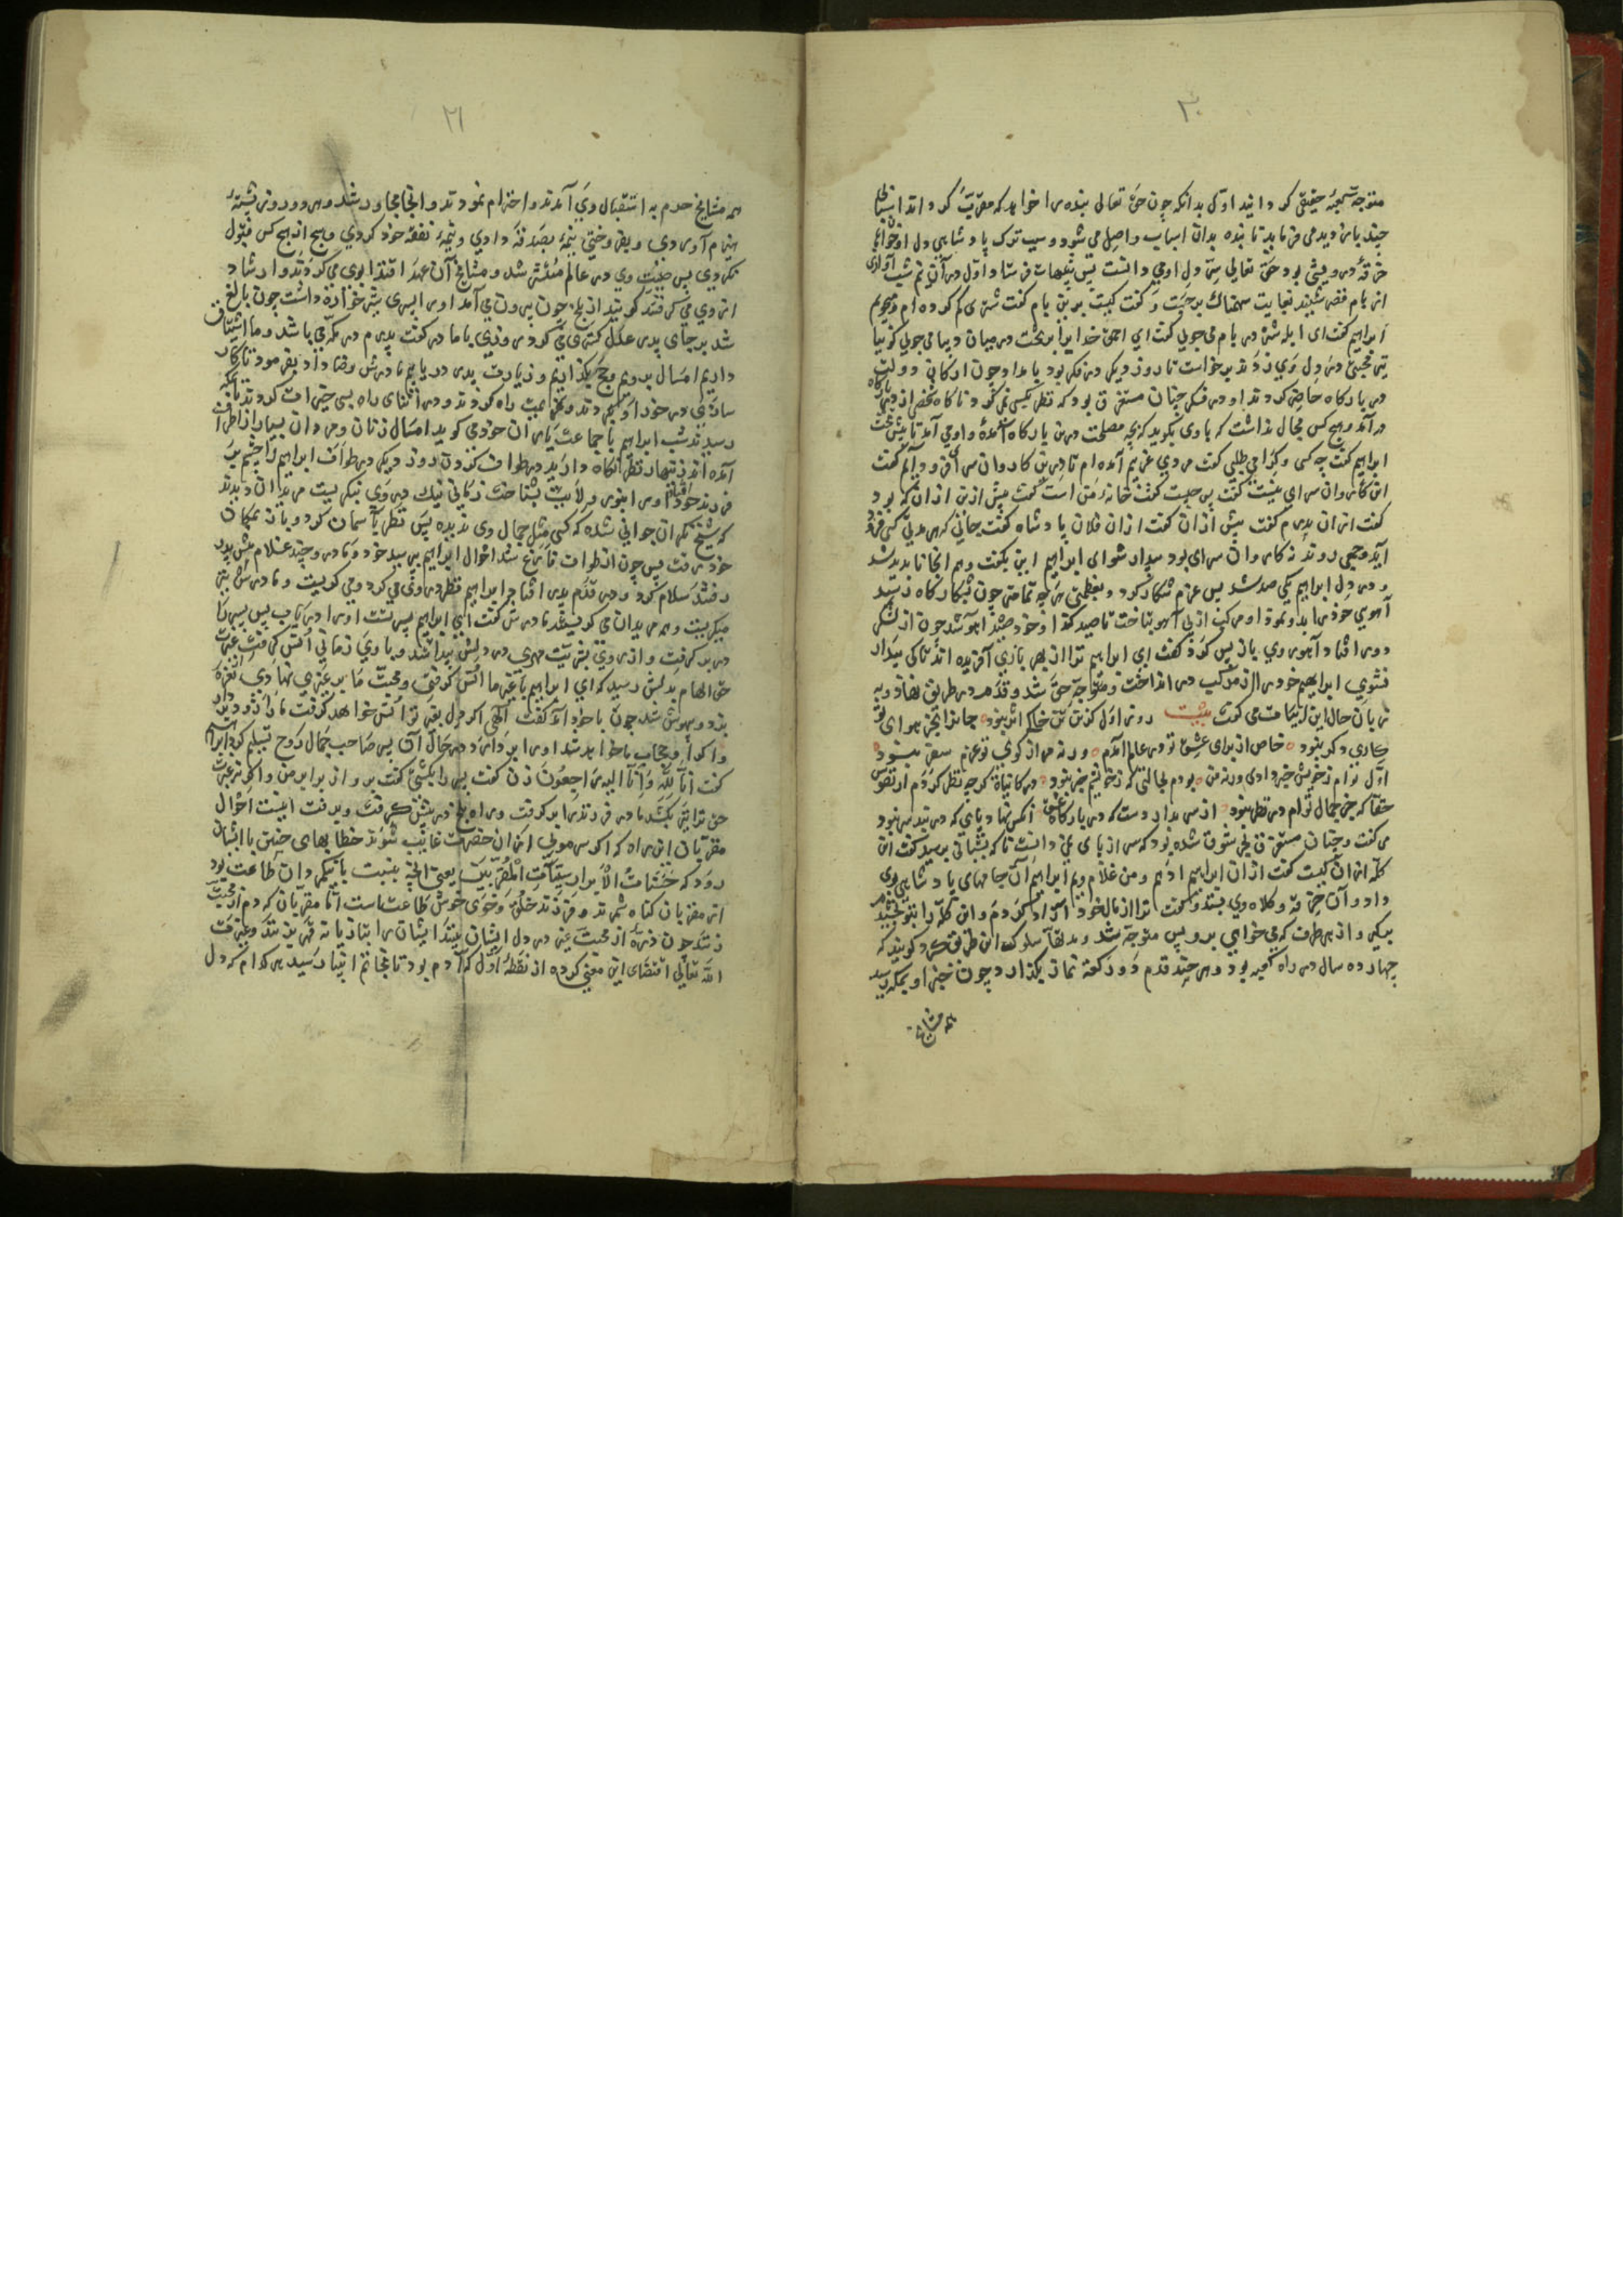 ۳۰
متوجه کعبهٔ حقیقی کردانید اوّل بدانکه چون حق تعالی بنده را خواهد که مقرّب کرداند اسباب
چند بارو پدید می فرماید تا بنده بدان اسباب واصل می شود و سبب ترک پادشاهی ول
خرقهٔ درویشی بود حق تعالی سرّ دل او می دانست پس تنبیهات فرستاد اوّل در آن نیم شب آوازی
از بام قصر شنید بغایت سهمناک برجست و کفت کیست برین بام کفت شتری کم کرده ام می جویم
ابراهیم کفت ای ابله شتر در بام می جویی کفت ای احمق خدایرا بر تخت در میان دیبا می جویی کوئیا
تیر محبتی در دل وی زدند برخواست تا روز دیکر در فکر بود بامداد چون ارکان دولت
در بارکاه حاضر کردند او در فکر چنان مستغرق بود که نظر بکسی نمی کرد ناکاه شخصی از در بارکاه
در آمد و هیچ کس مجال نداشت که با وی بکوید که بچه مصلحت درین بارکاه آمدهٔ و او می آمد تا پیش تخت
ابراهیم کفت چه کسی و کرا می طلبی کفت مردی غریبم آمده ام تا درین کاروان سرای فرود آیم کفت
این کاروان سرای نیست کفت پس چیست کفت خانهٔ من است کفت پیش ازین ازان که بود
کفت ازان پدرم کفت پیش ازان کفت ازان فلان پادشاه کفت جائی که هر مدتی کسی فرود
آید و جمعی روند نه کاروان سرای بود بیدار شو ای ابراهیم این بکفت و هم انجا ناپدید شد
و درد دل ابراهیم یکی صد شد پس عزم شکار کرد و بعظمتی هر چه تمامتر چون بشکارکاه رسید
آهویی خود را بدو نمود او مرکب از پی آهو بتاخت تا صید کند از خود صید آهو شد چون از لشکر
دور افتاد آهو روی باز پس کرد کفت ای ابراهیم ترا از بهر بازی آفریده اند تا کی بیدار
نشوی ابراهیم خود را از مرکب در انداخت و متوجه حق شد و قدم در طریق نهاد و به
زبان حال این ابیات می کفت بیت روز اوّل کزتن من خاک اثر نبود جانرا بجز هوای تو
کاری دکر نبود خاص از برای عشق تو در عالم آمدم ورنه مرا ز کوی تو عزم سفر نبود
اوّل توام ز خویش خبر دادی ورنه من بودم بحالتی که ز خویشم خبر نبود در کاینات کرچه نظر کردم از نفوس
حقا که جز جمال توام در نظر نبود از سر بدار دست که در بارکاه عشق آنکس نهاد پای که در بند سر نبود
می کفت و چنان مستغرق بحر شوق شده بود که سر از پای نمی دانست تا که بشبانی برسید کفت این
کلّه ازان کیست کفت ازان ابراهیم ادهم و من غلام ویم ابراهیم آن جامهای پادشاهی بوی
داد و آن خرقه و کلاه وی بستد و کفت ترا از مال خود آزاد کردم و این کلّه را بتو بخشیدم
بیکی و از هر طرف که می خواهی برو پس متوجه شد و بدلقا سلوک این طریق کرد کویند که
چهارده سال در راه کعبه بود و هر چند قدم دو رکعة نماز بکذارد چون خبر او بمکه رسید
همه مشایخ
۳۱
همه مشایخ حرم به استقبال وی آمدند و احترام نمودند و انجا مجاور شد و هر روز پشتهٔ
هیزم آوردی و بفروختی نیمهٔ بصدقه دادی و نیمهٔ نفقه خود کردی و هیچ از هیچ کس قبول
نکردی پس صیت وی در عالم منتشر شد و مشایخ آن عهد اقتدا بوی می کردند و ارشاد
از وی می کرفتند کویند از بلخ چون بیرون می آمد او را پسری شیرخواره داشت چون بالغ
شد بر جای پدر عدل کستری می کرد روزی با مادر کفت پدرم در مکه می باشد و ما اشتیاق
داریم امسال برویم و حج بکذاریم و زیارت پدر دریابیم مادرش رضا داد بفرمود تا کار
سازی در خور او بکردند و عزیمت راه کردند و در اثنای راه بسی خیرات کردند تا بمکه
رسیدند شب ابراهیم با جماعت یاران خود می کوید امسال زنان و مردان بسیار از اطراف
آمده اند زنهار نظر نکاه دارید در طواف کردن روز دیکر در طواف ابراهیم را چشم بر
فرزند خود افتاد او را بنور ولایت بشناخت زمانی نیک در وی نکریست مریدان دیدند
که شیخ نکران جوانی شده که کسی مثل جمال وی ندیده پس نظر باسمان کرد و باز بمکان
خود رفت پس چون از طواف فارغ شد احوال ابراهیم پرسید خود و مادر و چند غلام پیش پدر
رفتند سلام کرد و در قدم پدر افتاد و ابراهیم نظر در وی می کرد و می کریست و مادرش نیز
میکریست و همه مریدان می کریستند مادرش کفت ای ابراهیم پسر تست او را دریاب پس پسر را
در بر کرفت و از روی بشریّت مهری در دلش پیدا شد و با وی زمانی انس کرفت غیرت
حق الهام بدلش رسید که ای ابراهیم با غیر ما انس کرفتی و محبت ما بر غیری نهادی نعرهٔ
بزد و بیهوش شد چون باخود آمد کفت الهی اکر دل بغیر تو انس خواهد کرفت
کفت انّا للّه و انّا الیه راجعون زن کفت
حق ترا نیز بکشد مادر فرزند را بر کرفت و راه بلخ در پیش کرفت و برفت اینست احوال
مقربان این راه که اکر سر مویی ازان حضرت غایب شوند خطابهای چنین با ایشان
رود که حسنات الأبرار سیّئات المقرّبین یعنی آنچه بنسبت با نیکمردان طاعت بود
از مقربان کناه شمرند و فرزند خلف و خوی خوش طاعت ماست امّا مقربان که دم از محبت
زنند چون ذرّه از محبت غیر در دل ایشان بیند ایشان را بتازیانه قهر بزنند و غیرت
اللّه تعالی اقتضای این معنی کرده از نقطهٔ اوّل که آدم بود تا بخاتم انبیا رسید هر کدام که دل